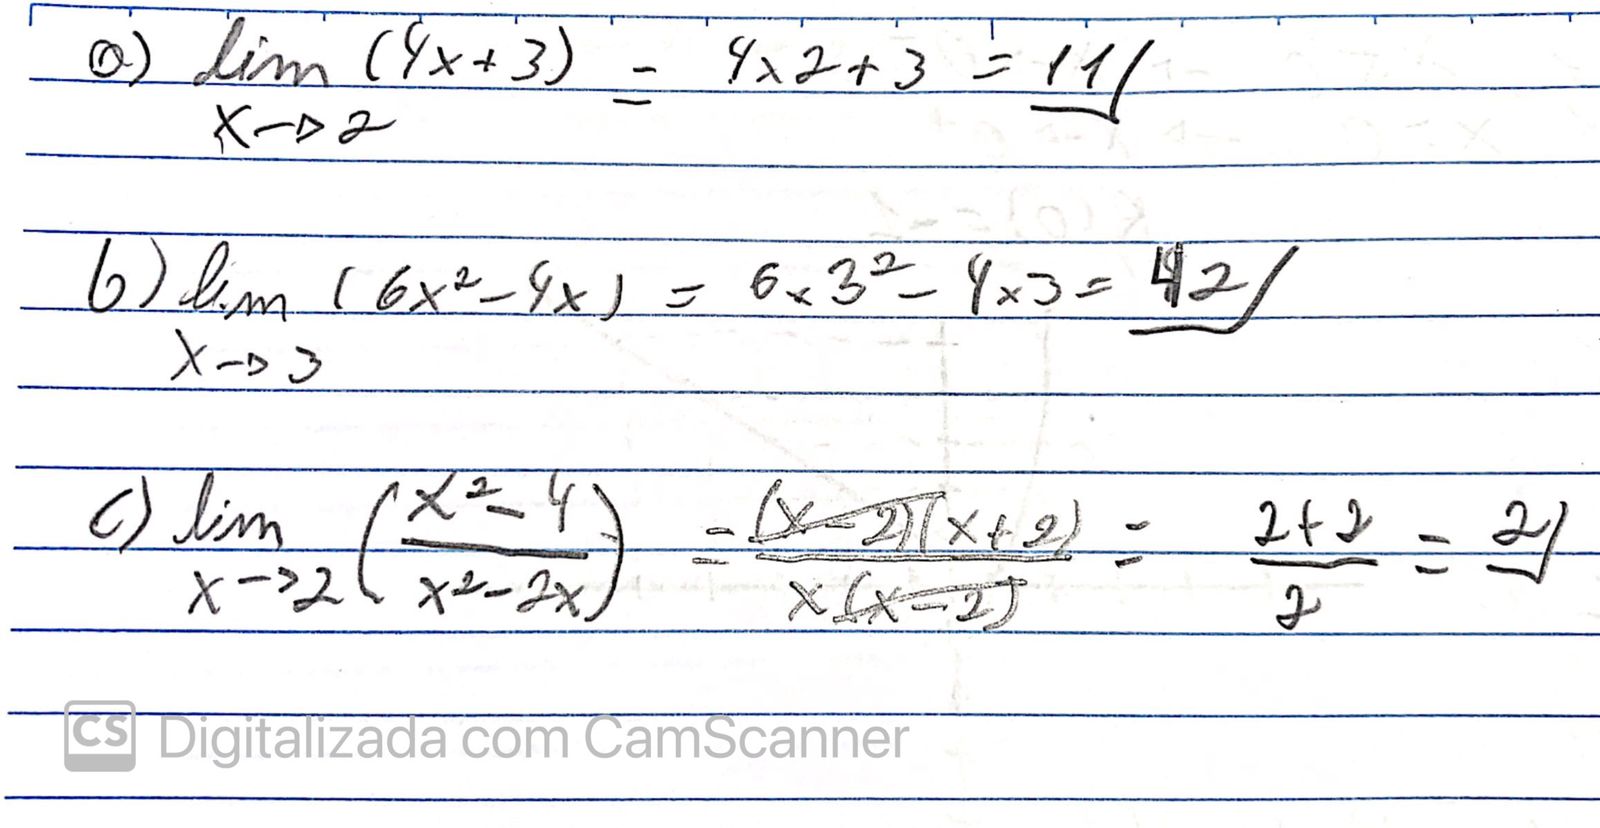 a) lim (4x+3) = 4x2+3 = 11
x→2
b) lim (6x²-4x) = 6x3²-4x3 = 42
x→3
c) lim (x²-4 / x²-2x) = (x-2)(x+2) / x(x-2) = 2+2 / 2 = 2
x→2
CS Digitalizada com CamScanner